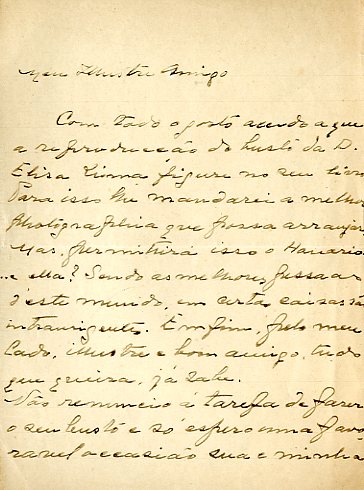 Meu Illustre Amigo
Com todo o gosto accedo a que
a reproducção do busto da D.
Elisa Lima figure no seu livro
Para isso lhe mandarei a melhor
photographia que possa arranjar
Mas, permittirá isso o
e ella? Sendo as melhores pessoas
d'este mundo, em certas coisas são
intransigentes. Emfim, pelo meu
lado, illustre e bom amigo, tudo
que queira, já sabe.
Não renuncio à tarefa de fazer
o seu busto e só espero uma favo
ravel occasião sua e minha